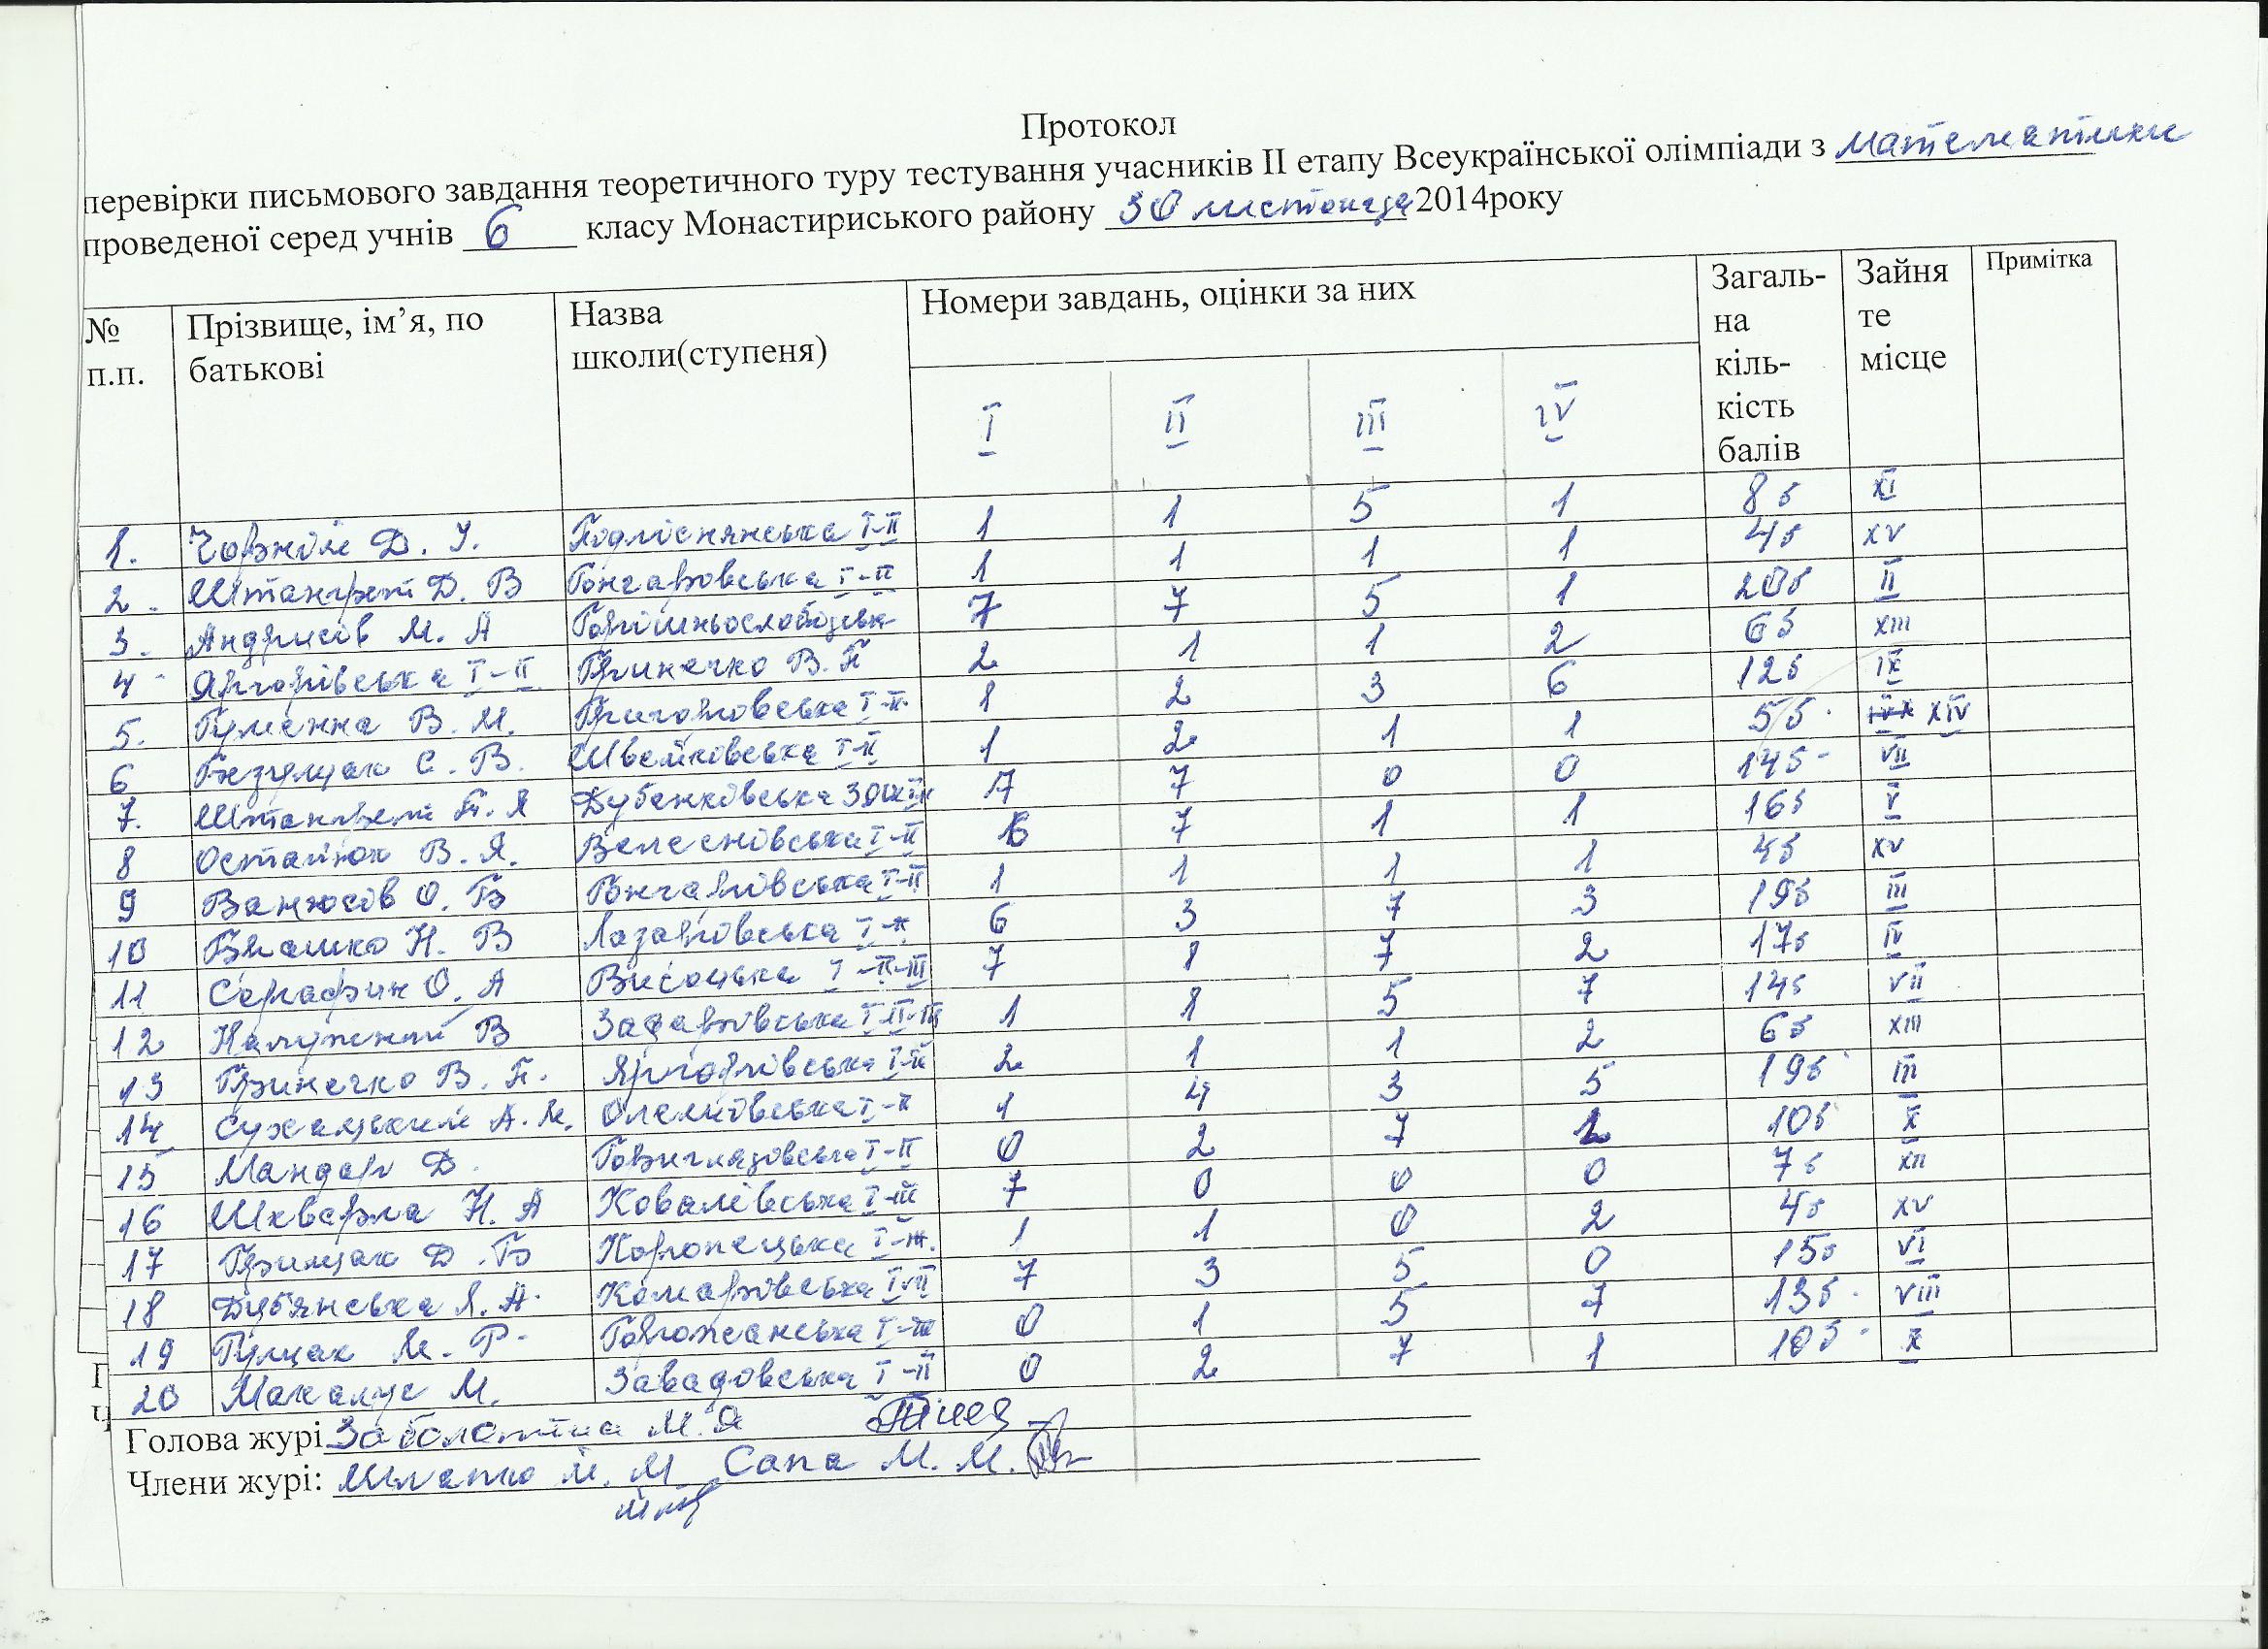 Протокол
перевірки письмового завдання теоретичного туру тестування учасників ІІ етапу Всеукраїнської олімпіади з математики
проведеної серед учнів 6 класу Монастириського району 30 листопада 2014року
№ п.п. Прізвище, ім’я, по батькові Назва школи(ступеня) Номери завдань, оцінки за них Загаль-на кіль-кість балів Зайня те місце Примітка
I II III IV
1. Д. У. Підлісянська I-II 1 1 5 1 8б XI
2. Штангрет Д. В Гончарівська I-II 1 1 1 1 4б XV
3. Андрусів М. А 7 7 5 1 20б II
4 Яргорівська I-II Гринечко В. П 2 1 1 2 6б XIII
5. Гуменна В. М. Григорівська I-II 1 2 3 6 12б IX
6 С. В. Швейківська I-II 1 2 1 1 5б XIV
7. Штангрет П. Я Дубенківська ЗОШ 7 7 0 0 14б VII
8 В. Я. Велеснівська I-II 7 1 1 16б V
9 Ванюсів О. Б Гончарівська I-II 1 1 1 1 4б XV
10 Н. В Лазарівська I-II 6 3 7 3 19б III
11 Серафин О. А Висоцька I-II-III 7 1 7 2 17б IV
12 В Задарівська I-II-III 1 1 5 7 14б VII
13 Гринечко В. П. Яргорівська I-II 2 1 1 2 6б XIII
14 А. М. Олешівська I-II 1 3 5 19б III
15 Мандат Д. I-II 0 2 7 10б X
16 Шкварла Н. А Ковалівська I-III 7 0 0 0 7б XII
17 Грицак Д. Б Коропецька 1 1 0 2 4б XV
18 Дуб'янська Я. А. Комарівська I-II 7 3 5 0 15б VI
19 Гуцак М. Р. Горожанська I-III 0 1 5 7 13б VIII
20 М. Завадівська I-II 0 2 7 1 10б X
Голова журі Заболотна М. Я
Члени журі: М. Сапа М. М.